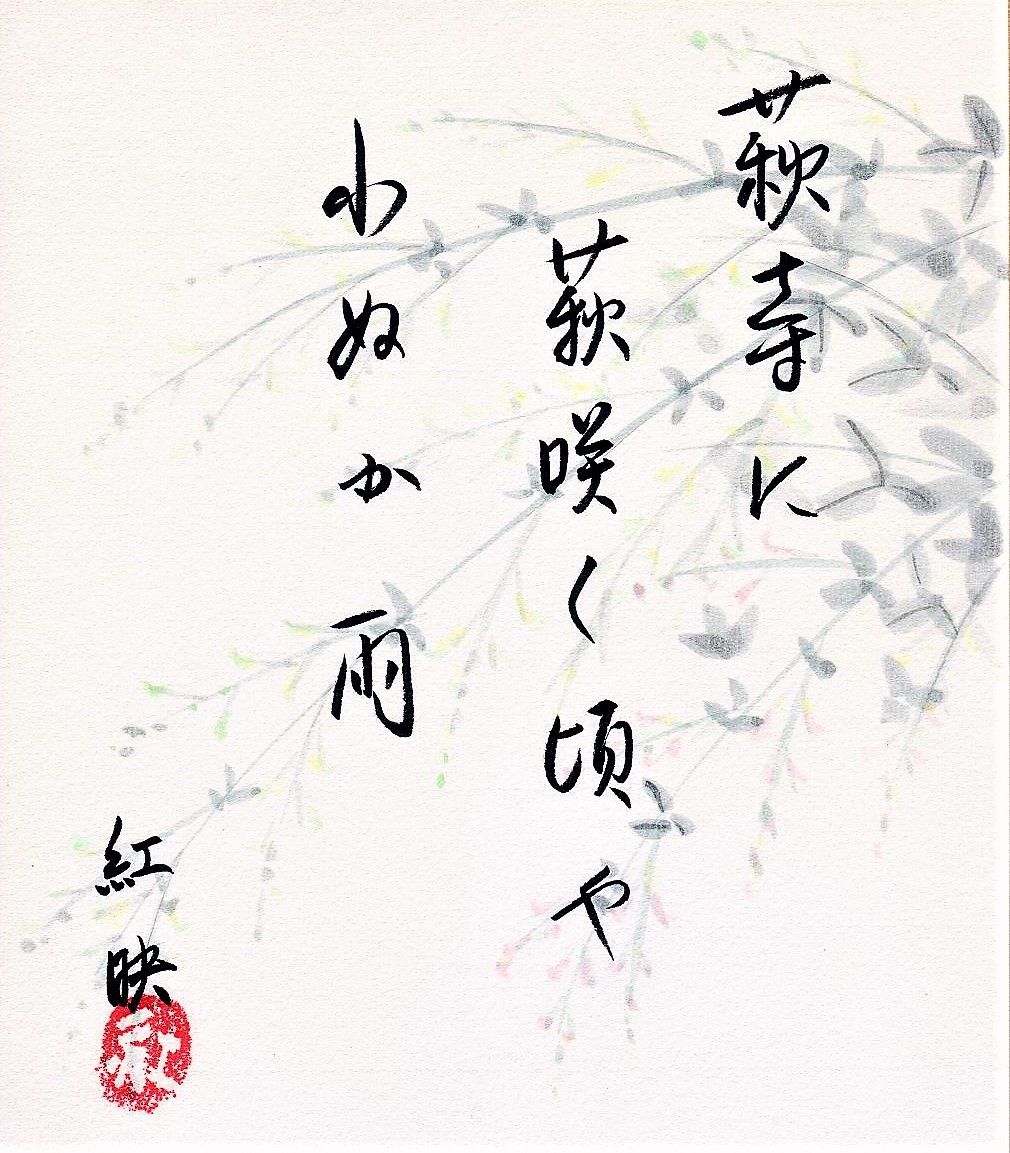 萩寺に
萩咲く頃や
小ぬか雨
紅映